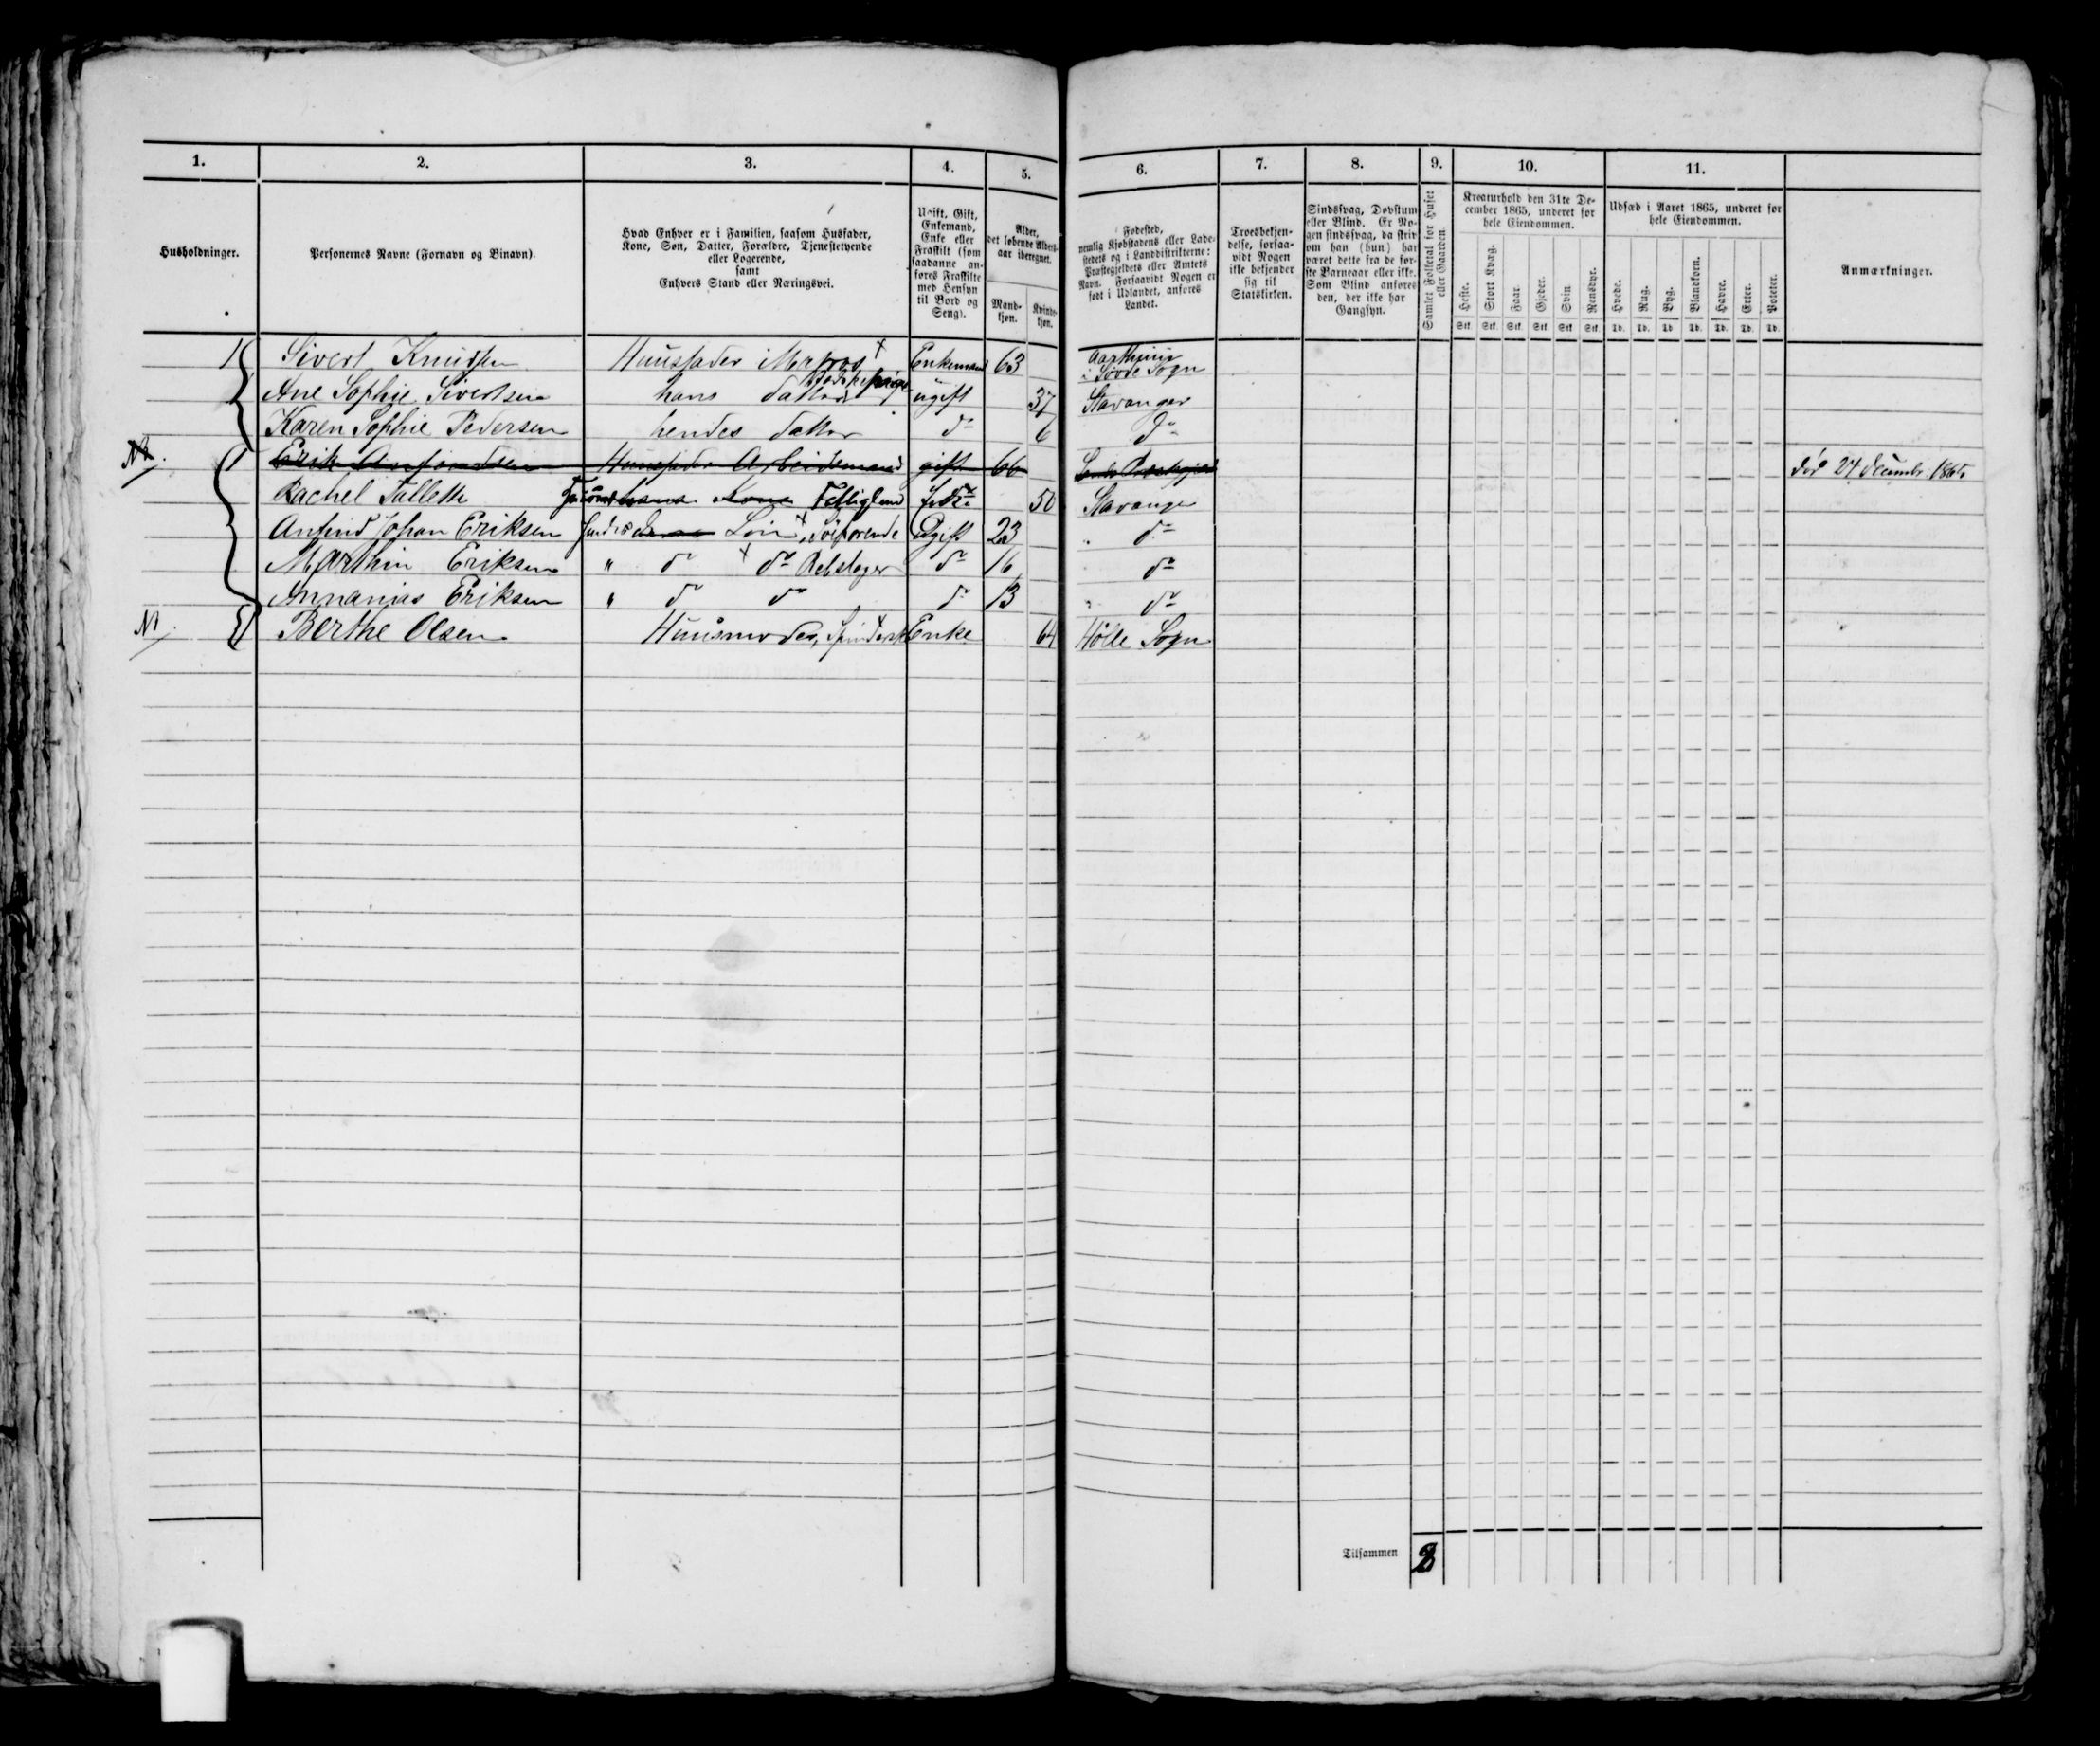 1. 2. 3. 4. 5. 6. 7. 8. 9. 10. 11.
Husholdninger.
Personernes Navne (Fornavn og Binavn).
Hvad Enhver er i Familien, saasom Husfader,
Kone, Søn, Datter, Forældre, Tjenestetyende
eller Logerende,
samt
Enhvers Stand eller Næringsvei.
Ugift, Gift,
Enkemand,
Enke eller
Fraskilt (som
saadanne an-
føres Fraskilte
med Hensyn
til Bord og
Seng).
Alder,
det løbende Alders-
aar iberegnet.
Mand-
kjøn.
Kvinde-
kjøn.
Fødested,
nemlig Kjøbstadens eller Lade-
stedets og i Landdistrikterne:
Præstegjeldets eller Amtets
Navn. Forsaavidt Nogen er
født i Udlandet, anføres
Landet.
Troesbekjen-
delse, forsaa-
vidt Nogen
ikke bekjender
sig til
Statskirken.
Sindssvag, Døvstum
eller Blind. Er No-
gen sindssvag, da skriv
om han (hun) har
været dette fra de før-
ste Barneaar eller ikke.
Som Blind anføres
den, der ikke har
Gangsyn.
Samlet Folketal for Huset
eller Gaarden.
Kreaturhold den 31te De-
cember 1865, underet for
hele Eiendommen.
Heste. Stort Kvæg. Faar. Gjeder. Svin. Rensdyr.
Stk. Stk. Stk. Stk. Stk. Stk.
Udsæd i Aaret 1865, underet for
hele Eiendommen.
Hvede. Rug. Byg. Blandkorn. Havre. Erter. Poteter.
Td. Td. Td. Td. Td. Td. Td.
Anmærkninger.
1 Sivert Knudsen Huusfader Matros Enkemand 63 i Søvde Sogn
Ane Sophie Sivertsen hans datter ugift 37 Stavanger
Karen Sophie Pedersen hendes datter do 6 do
Huusfader Arbeidsmand gift 66 død 24 December 1865
Rachel Tallette Kone 50 Stavanger
Anfind Johan Eriksen Søn, Søfarende Ugift 23 do
Marthin Eriksen " do do Rebslager do 16 do
Annanias Eriksen " do do do 13 " do
Berthe Olsen Huusmoder, Enke 64 Hølle Sogn
Tilsammen 8